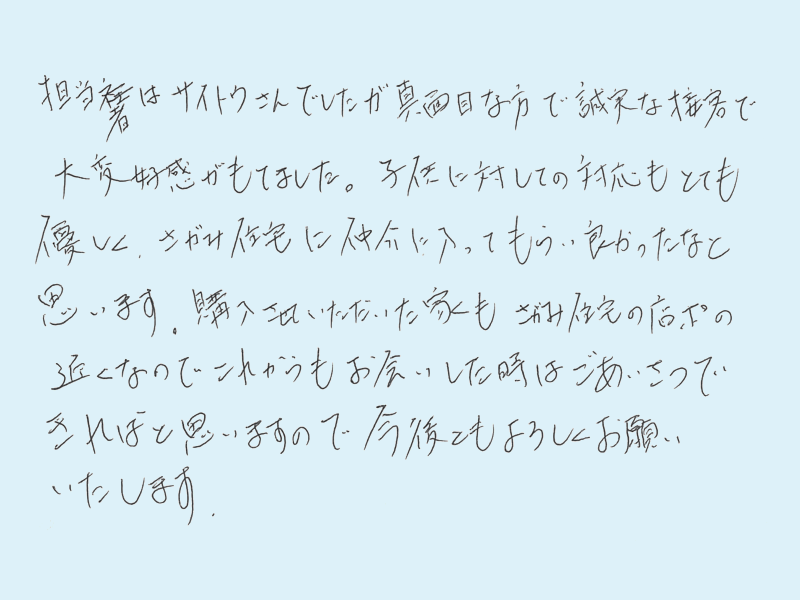 担当者はサイトウさんでしたが真面目な方で誠実な接客で
大変好感がもてました。子供に対しての対応もとても
優しく、さがみ住宅に仲介に入ってもらい良かったなと
思います。購入させていただいた家もさがみ住宅の店ポの
近くなのでこれからもお会いした時はごあいさつで
きればと思いますので今後ともよろしくお願い
いたします.